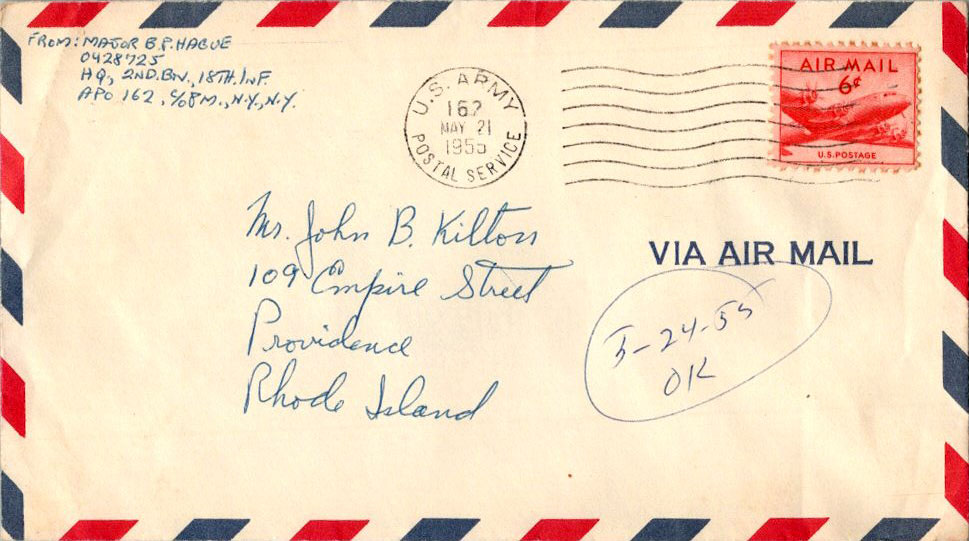 FROM: MAJOR B.P. HAGUE
0428725
HQ, 2ND. BN., 18TH. INF.
APO 162, c/o P.M., N.Y., N.Y.
U.S. ARMY
162
MAY 21
1955
POSTAL SERVICE
AIR MAIL
6¢
U.S. POSTAGE
Mr. John B. Kilton
109 Empire Street
Providence
Rhode Island
VIA AIR MAIL
5-24-55
OK